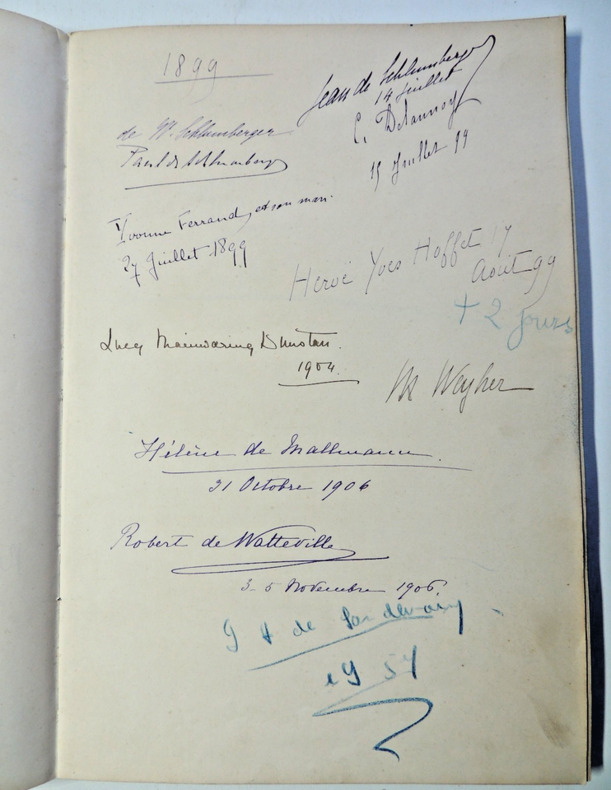 1899
Jean de Schlumberger
14 juillet
de W. Schlumberger
Paul de Schlumberger
C. Delaunoy
15 Juillet 99
Yvonne Ferrand, et son mari.
27 Juillet 1899
Hervé Yves Hoffet 17
Août 99
+ 2 jours
Lucy Mainwaring Dunstan.
1904.
Weyher
Hélène de Mallmann.
31 Octobre 1906
Robert de Watteville
3-5 Novembre 1906.
de
1957